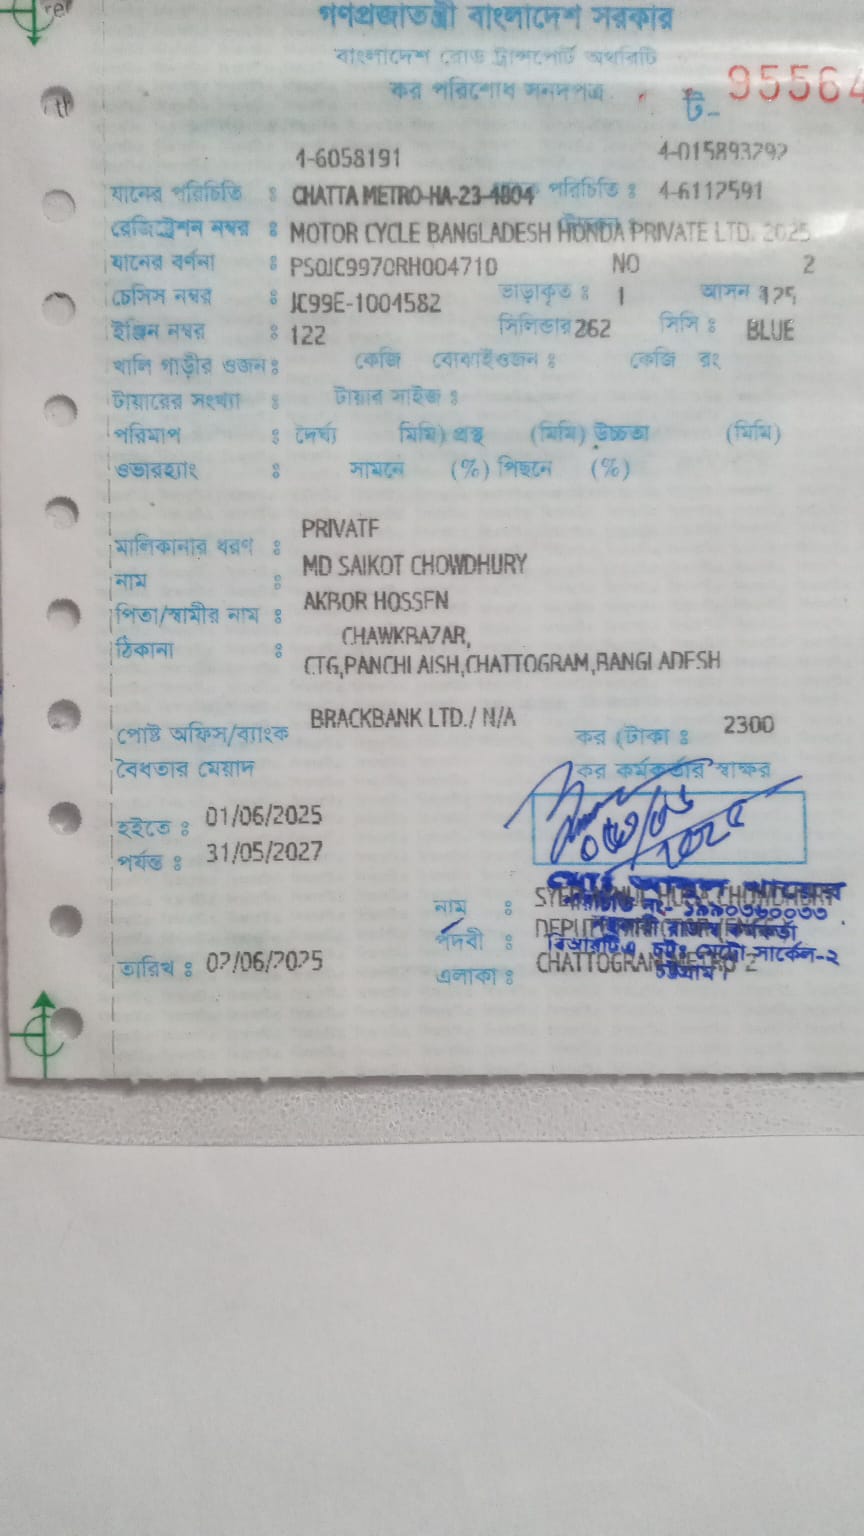 গণপ্রজাতন্ত্রী বাংলাদেশ সরকার
বাংলাদেশ রোড ট্রান্সপোর্ট অথরিটি
কর পরিশোধ সনদপত্র
ট- 95564
4-6058191 4-015893292
যানের পরিচিতি : CHATTA METRO-HA-23-4804 পরিচিতি : 4-6112591
রেজিষ্ট্রেশন নম্বর : MOTOR CYCLE BANGLADESH HONDA PRIVATE LTD. 2025
যানের বর্ণনা : PS0JC9970RH004710 NO 2
চেসিস নম্বর : JC99E-1004582 ভাড়াকৃত : 1 আসন 125
ইঞ্জিন নম্বর : 122 সিলিন্ডার 262 সিসি : BLUE
খালি গাড়ীর ওজন : কেজি বোঝাই ওজন : কেজি রং
টায়ারের সংখ্যা : টায়ার সাইজ :
পরিমাপ : দৈর্ঘ্য মিমি) প্রস্থ (মিমি) উচ্চতা (মিমি)
ওভারহ্যাং : সামনে (%) পিছনে (%)
PRIVATE
মালিকানার ধরণ :
MD SAIKOT CHOWDHURY
নাম :
AKBOR HOSSEN
পিতা/স্বামীর নাম :
CHAWKBAZAR,
ঠিকানা :
CTG,PANCHLAISH,CHATTOGRAM,BANGLADESH
পোষ্ট অফিস/ব্যাংক BRACKBANK LTD./ N/A কর (টাকা : 2300
বৈধতার মেয়াদ কর কর্মকর্তার স্বাক্ষর
হইতে : 01/06/2025
পর্যন্ত : 31/05/2027
নাম : CHOWDHURY
পদবী :
তারিখ : 02/06/2025
এলাকা : CHATTOGRAM METRO-2
রাজস্ব কর্মকর্তা
সার্কেল-২
চট্টগ্রাম।